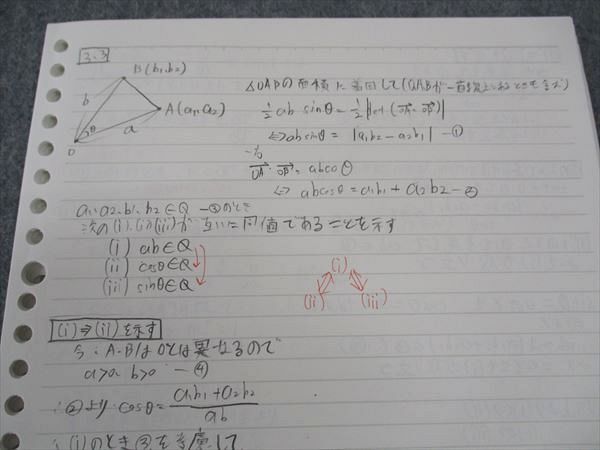 3.3
B(b1, b2)
A(a1, a2)
b
θ
a
O
△OABの面積に着目して(OABが一直線上にあるときも含む)
1/2 ab sinθ = 1/2 |det(OA, OB)|
⇔ ab sinθ = |a1b2 - a2b1| -①
一方
OA・OB = abcosθ
⇔ abcosθ = a1b1 + a2b2 -②
a1, a2, b1, b2 ∈ Q -③のとき
次の(i),(ii)(iii)が互いに同値であることを示す
(i) ab∈Q
(ii) cosθ∈Q
(iii) sinθ∈Q
(i)
(ii) (iii)
(i)⇒(ii)を示す
今、A・BはOとは異なるので
a>0 b>0 -④
∴②より cosθ = a1b1+a2b2 / ab
∴(i)のとき③を考慮して